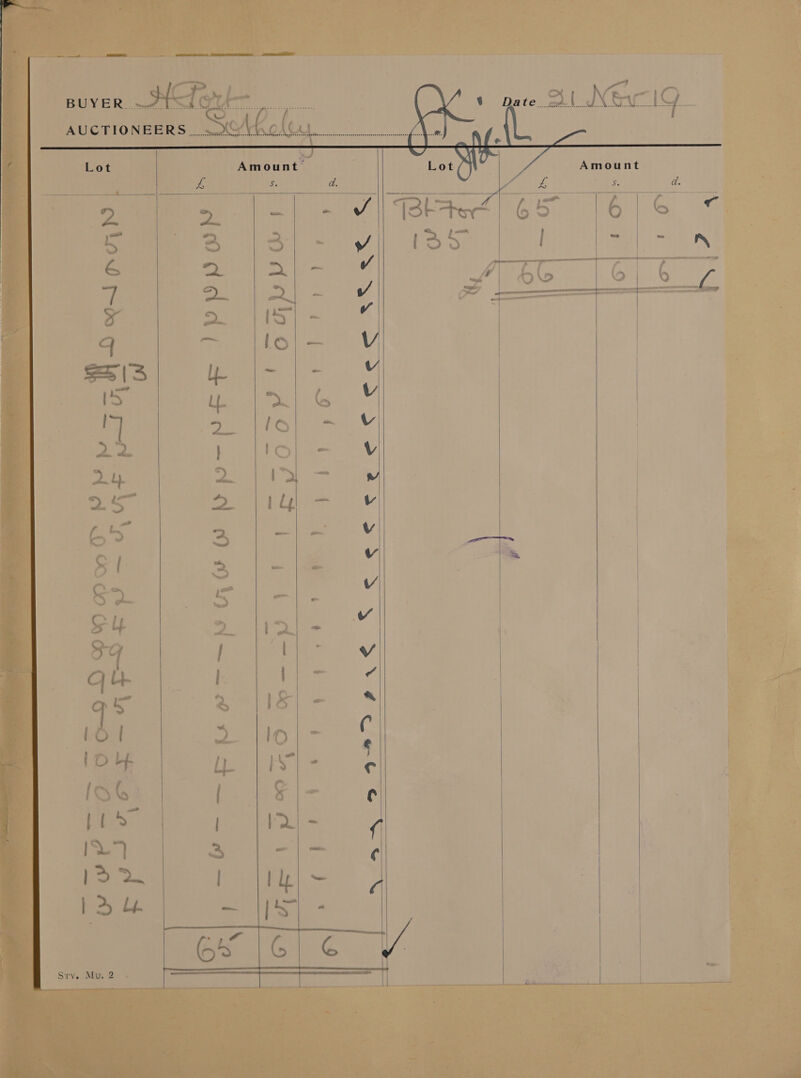 BUYER Date 21 Nov 19
AUCTIONEERS Sotheby
Lot Amount Lot Amount
£ s. d. £ s. d.
2 2 - - ✓ Bt For 65 6 6
5 3 3 - ✓ 135 1 - -
6 2 2 - ✓ £ 66 6 6
7 2 2 - ✓
8 2 15 - ✓
9 - 10 - ✓
13 4 - - ✓
15 4 2 6 ✓
17 2 10 - ✓
22 1 10 - ✓
24 2 12 - ✓
25 2 14 - ✓
65 3 - - ✓
81 3 - - ✓
82 5 - - ✓
84 2 12 - ✓
89 1 1 - ✓
94 1 1 - ✓
95 2 18 -
101 2 10 -
104 4 15 -
106 1 8 -
115 1 12 -
127 3 - -
132 1 14 -
134 - 15 -
65 6 6 ✓
Srv. Mu. 2